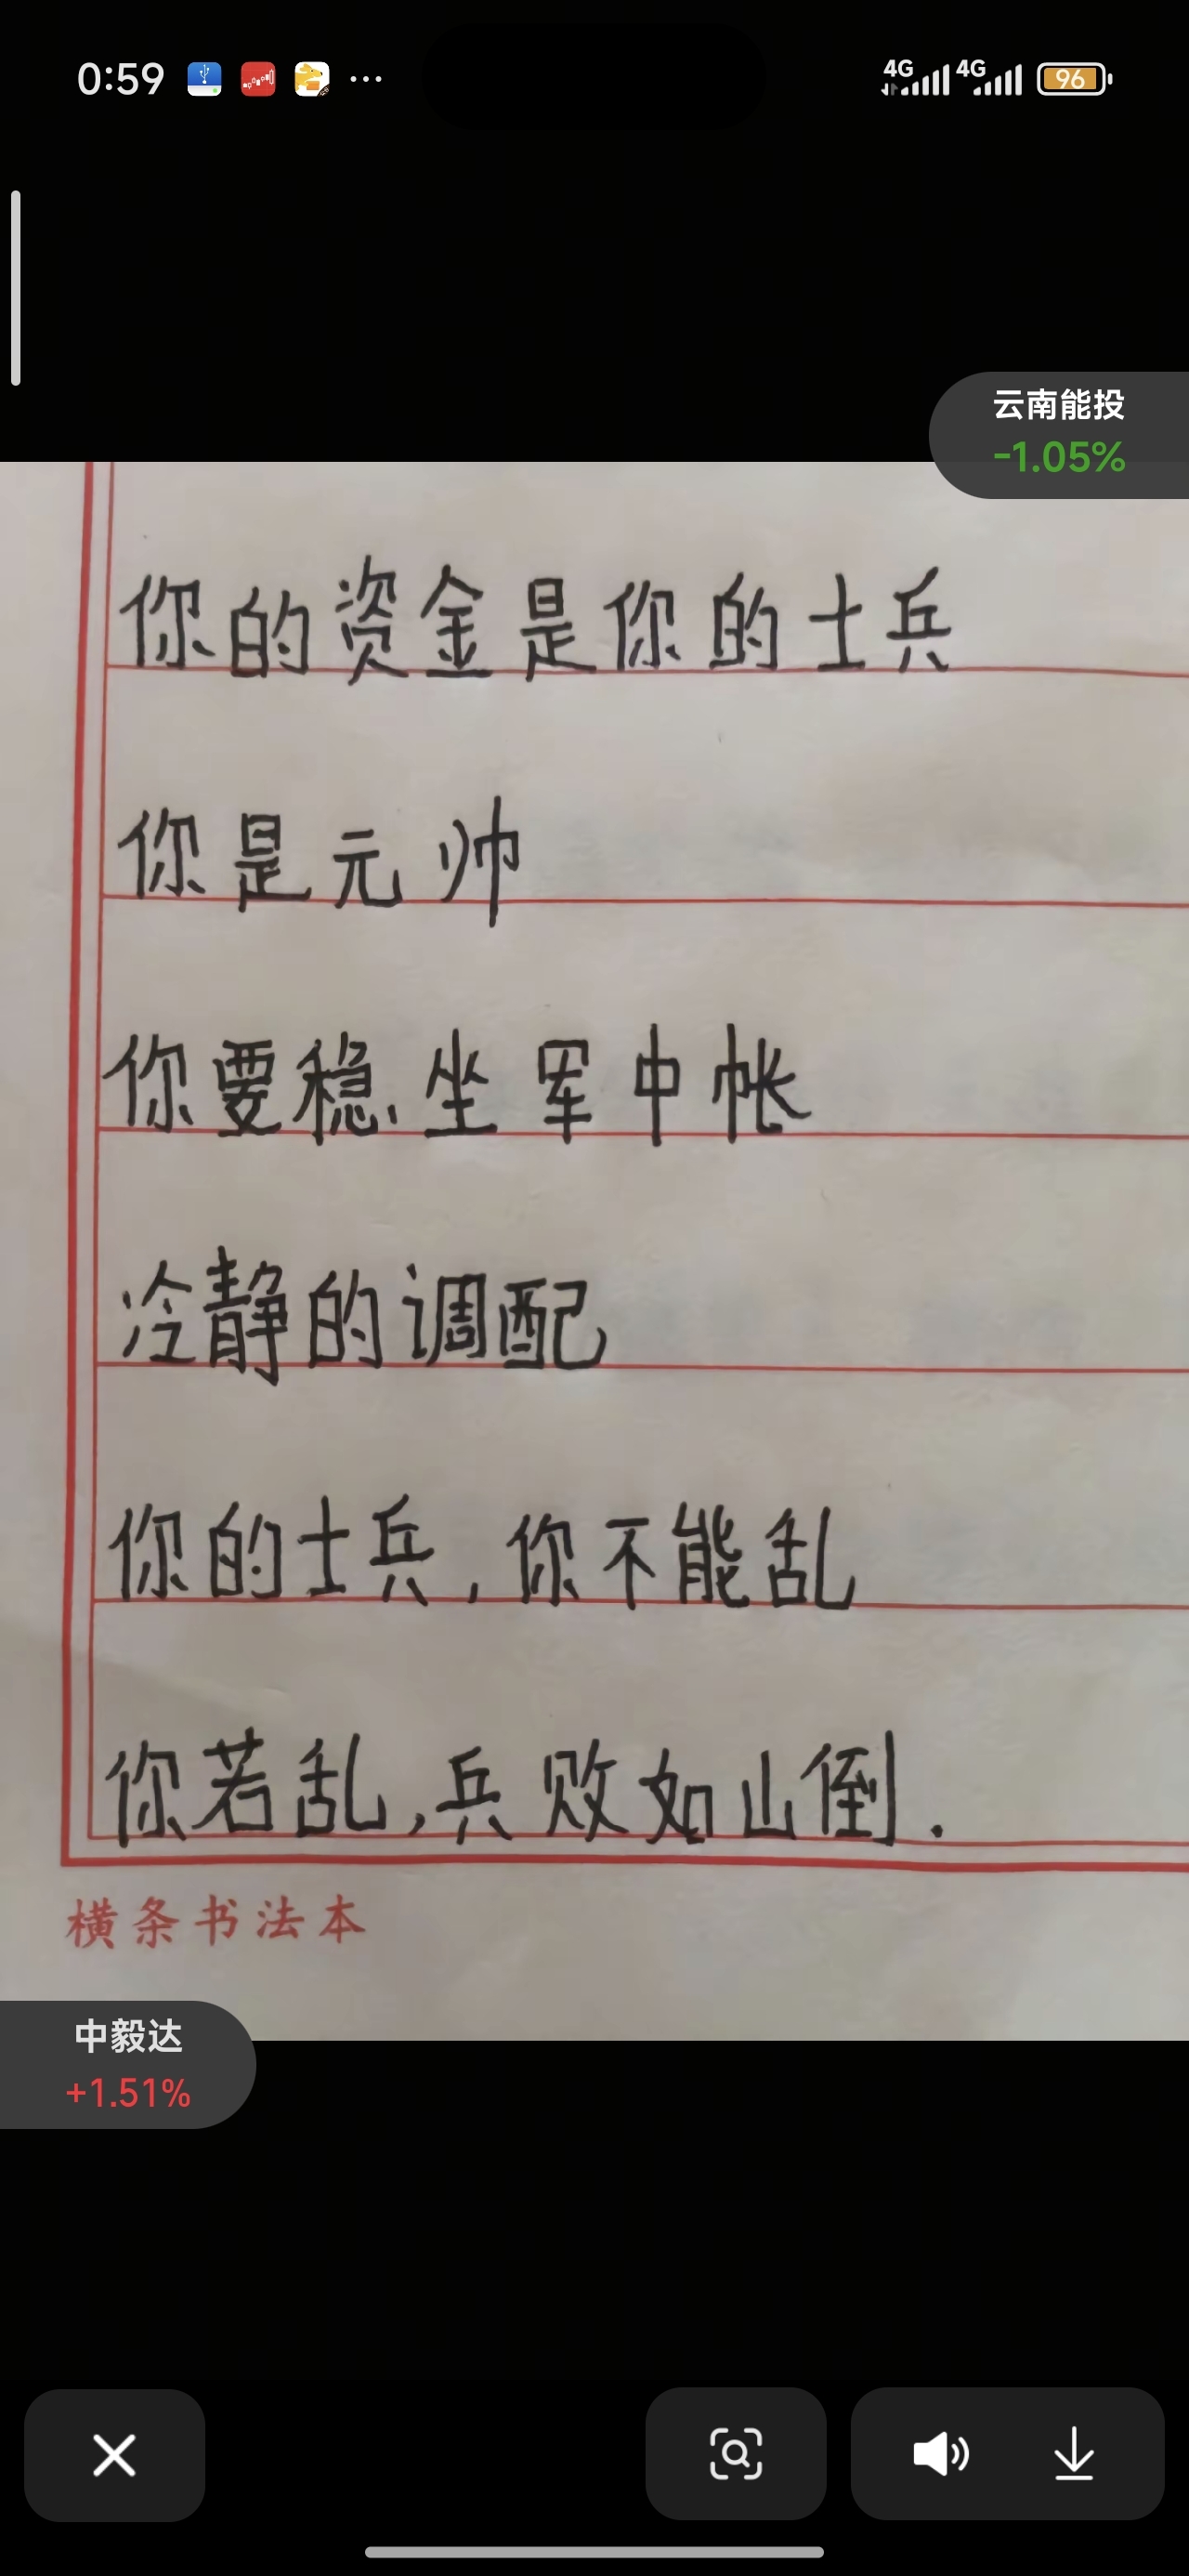 0:59
4G 4G 96
云南能投
-1.05%
你的资金是你的士兵
你是元帅
你要稳坐军中帐
冷静的调配
你的士兵,你不能乱
你若乱,兵败如山倒.
横条书法本
中毅达
+1.51%